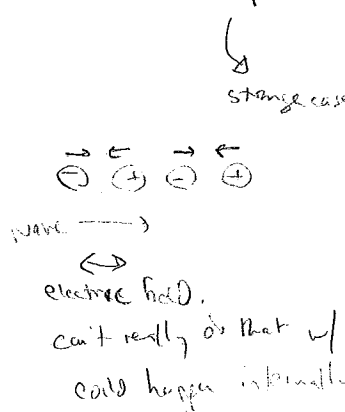 strange case
→ ← → ←
⊖ ⊕ ⊖ ⊕
wave ⟶
↔
electric field.
can't really do that w/
could happen internally